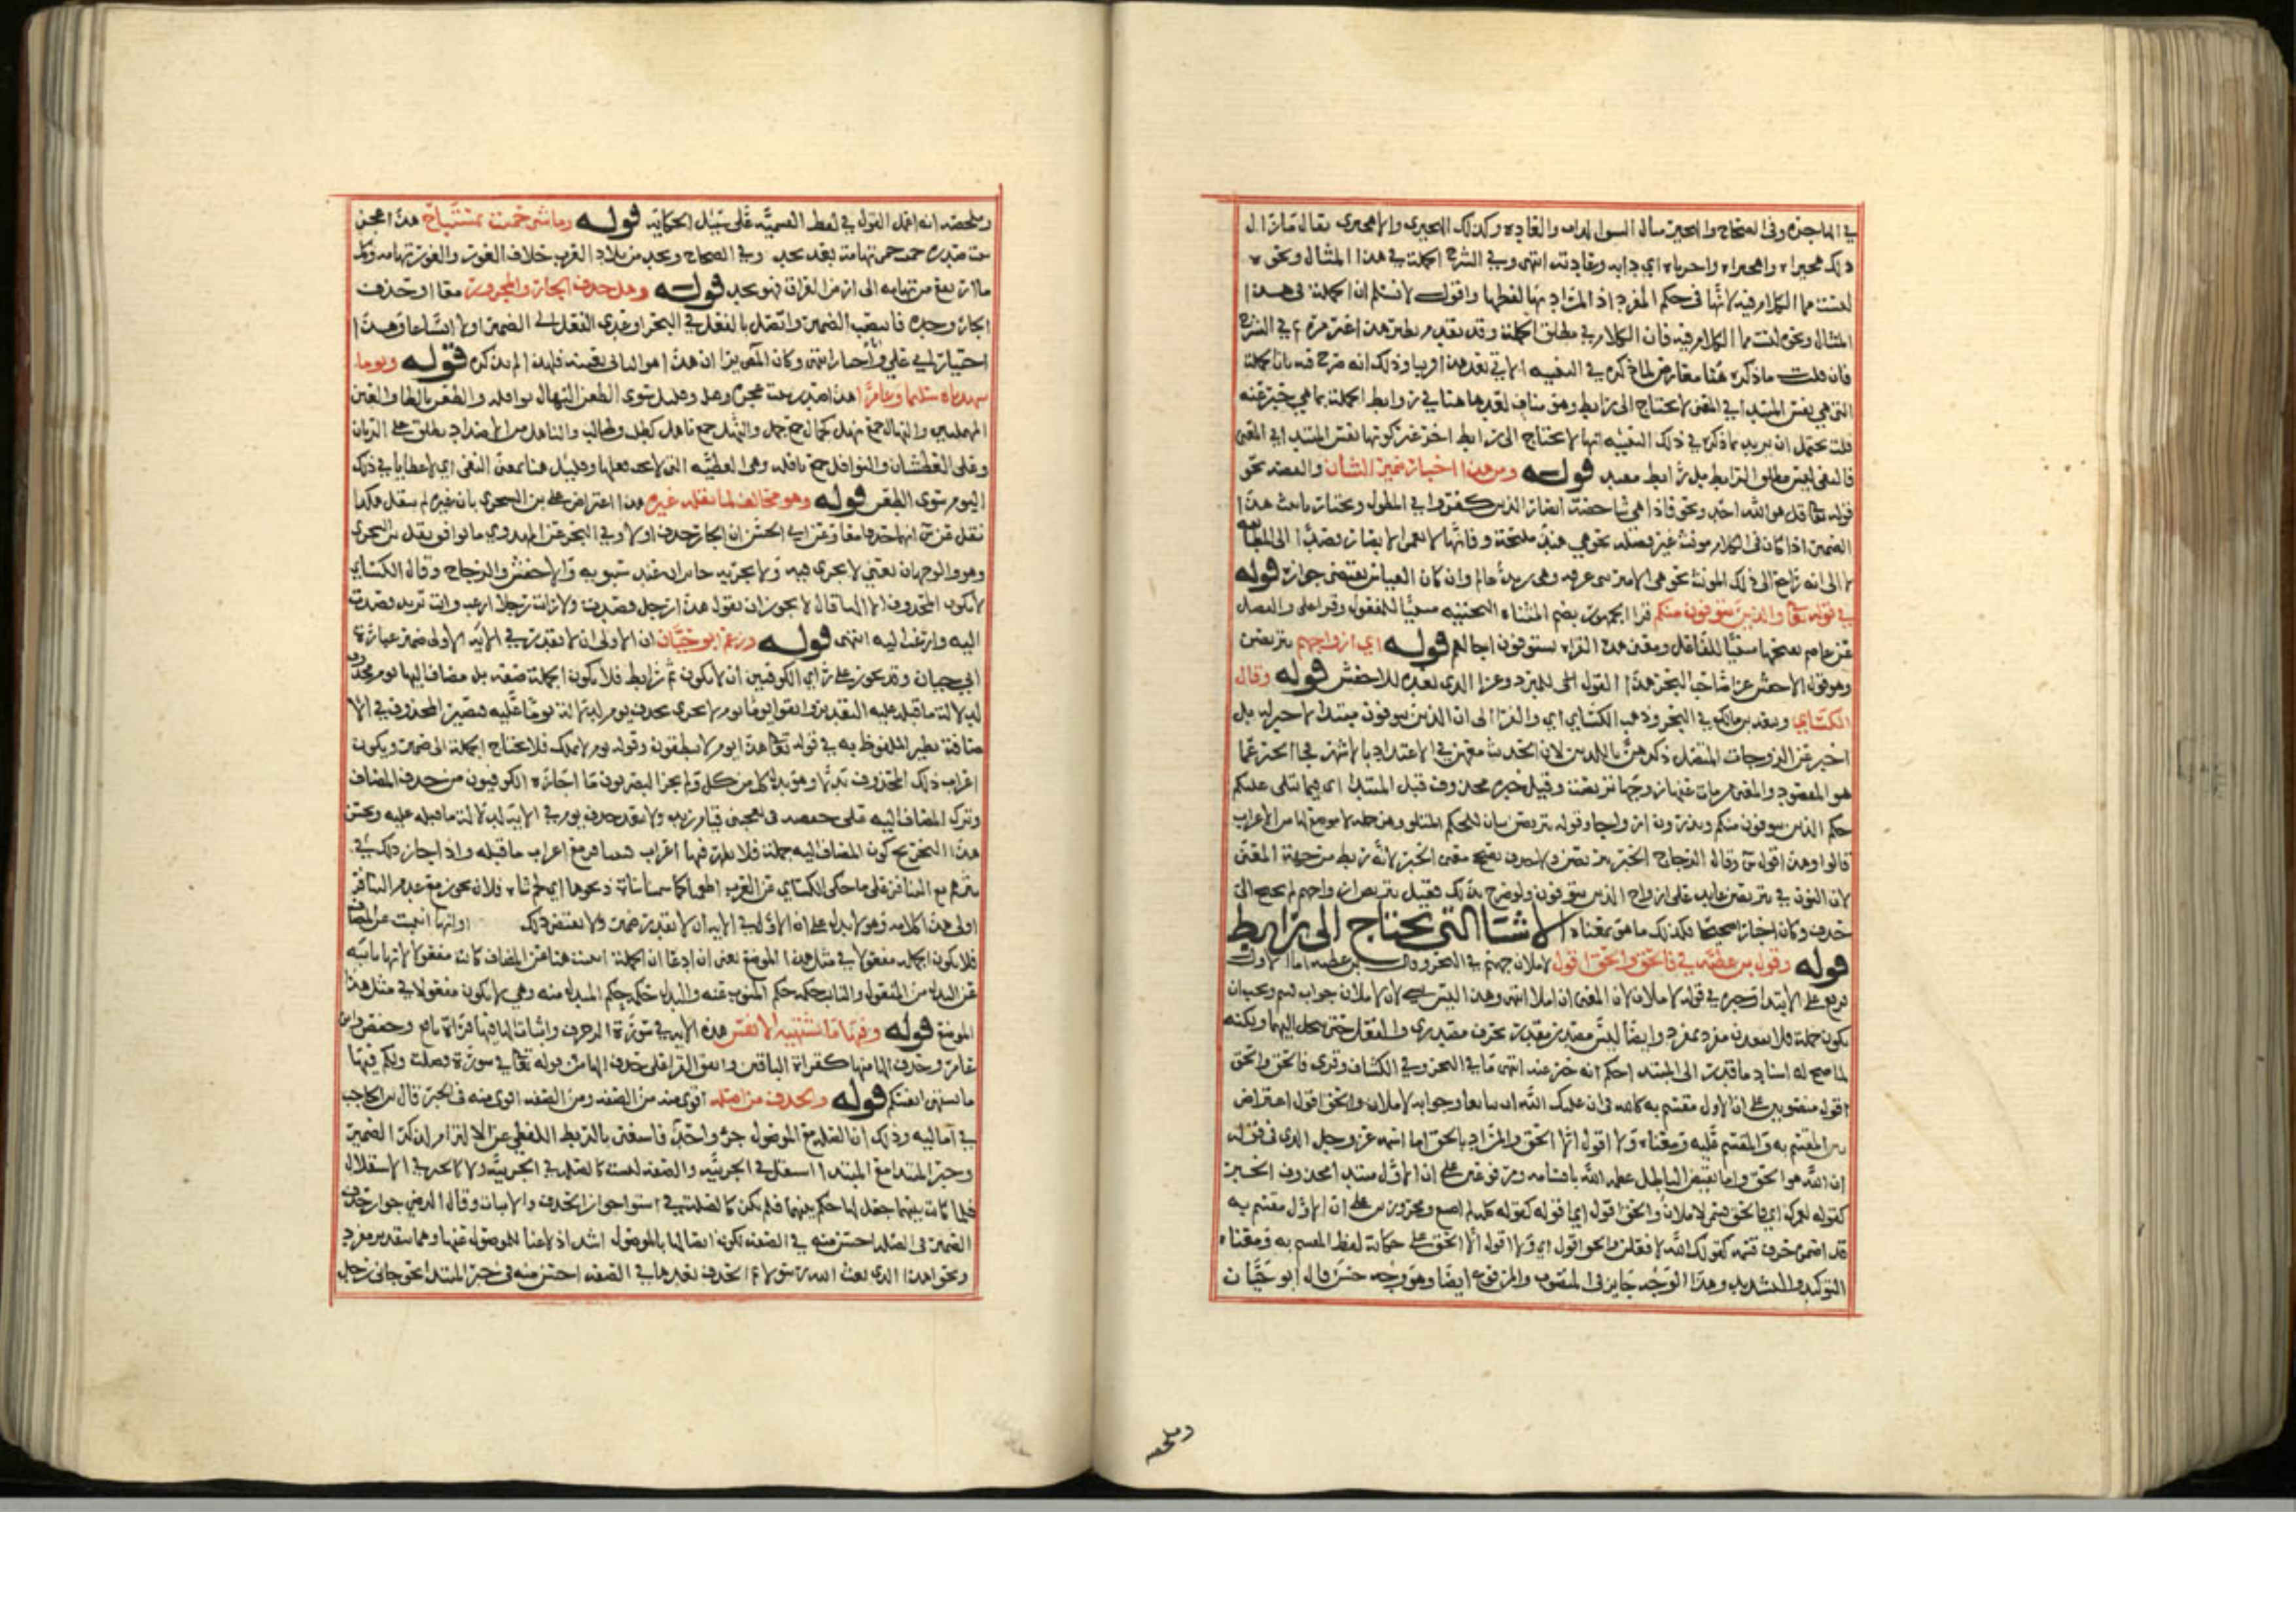 في الهاجرة وفي الصحاح والهجير مثال السوالداب والعادة وكذلك الهجيري والاهجيري يقال ما زال
ذلك هجيراه واهجيراه واجرياه اي دابه وعادته انتهى وفي الشرح الجملة في هذا المثال ونحوه
ليست مما الكلام فيه لانها في حكم المفرد اذ المراد بها لفظها واقول لا نسلم ان الجملة في هذا
المثال ونحوه ليست مما الكلام فيه فان الكلام في مطلق الجملة وقد تقدم نظير هذا غير مرة في الشرح
فان قلت ما ذكره هنا معارض لما ذكره في التنبيه الاتي بعد هذا وذلك انه صرح فيه بان الجملة
التي هي نفس المبتدا في المعنى لا تحتاج الى رابط وهو مناف لعدها هنا في روابط الجملة بما هي خبر عنه
قلت يحتمل ان يريد بما ذكره في ذلك التنبيه انها لا تحتاج الى رابط اخر غير كونها نفس المبتدا في المعنى
فالنفي ليس مطلق الرابط بل رابط مقيد قوله ومن هذا اخبار ضمير الشان والقصة نحو
قوله تعالى قل هو الله احد ونحو فاذا هي شاخصة ابصار الذين كفروا في المطول ويختار تانيث هذا
الضمير اذا كان في الكلام مونث غير فضلة نحو هي هند مليحة وفانها لا تعمى الابصار قصدا الى المطابقة
لا الى انه راجع الى ذلك المونث نحو هي الامير بنى غرفة وهي زيد عالم وان كان القياس يقتضي جوازه قوله
في قوله تعالى والذين يتوفون منكم قرا الجمهور بضم المثناه التحتيه مبنيا للمفعول وقرا علي والمفضل
عن عاصم بفتحها مبنيا للفاعل ومعنى هذه القراه يستوفون اجالهم قوله اي ازواجهم يتربصن
وهو قول الاخفش عزا صاحب البحر هذا القول الى المبرد وعزا الذي بعده للاخفش قوله وقال
الكسائي وتبعه ابن مالك في البحر وذهب الكسائي اي والفرا الى ان الذين يتوفون مبتدا لا خبر له بل
اخبر عن الزوجات المتصل ذكرهن بالذين لان الحديث معهن في الاعتداد بالاشهر فجا الخبر عما
هو المقصود والمعنى من مات عنها زوجها تربصت وقيل خبره محذوف قبل المبتدا اي فيما يتلى عليكم
حكم الذين يتوفون منكم ويذرون ازواجا وقوله يتربصن بيان للحكم المتلو وهي جملة لا موضع لها من الاعراب
قالوا وهذا قول س وقال الزجاج الخبر يتربصن ولا حذف يصحح معنى الخبر لانه ربط من جهة المعنى
لان النون في يتربصن عايد على ازواج الذين يتوفون ولو صرح بذلك فقيل يتربص ازواجهم لم يحتج الى
حذف وكان اخبارا صحيحا فكذلك ما هو بمعناه الاشيا التي تحتاج الى رابط
قوله وقول ابن عطية في فالحق والحق اقول لاملان جهنم في البحر وقال ابن عطية اما الاول
فرفع على الابتدا وخبره في قوله لاملان لان المعنى ان املا انتهى وهذا ليس بشي لان لاملان جواب قسم ويجب ان
يكون جملة فلا يتقدر بمفرد وايضا ليس مصدرا مقدرا بحرف مصدري والفعل حتى ينحل اليهما ولكنه
لما صح له اسناد ما قدر الى المبتدا حكم انه خبر عنه انتهى ما في البحر وفي الكشاف وقرى فالحق والحق
اقول منصوبين على ان الاول مقسم به كالله في ان عليك الله ان تبايعا وجوابه لاملان والحق اقول اعتراض
بين المقسم به والمقسم عليه ومعناه ولا اقول الا الحق والمراد بالحق اما اسمه عز وجل الذي في قوله
ان الله هو الحق واما نقيض الباطل عظمه الله باقسامه ومرفوعين على ان الاول مبتدا محذوف الخبر
كقوله لعمرك اي فالحق قسمي لاملان والحق اقول اي اقوله كقوله كله لم اصنع ومجرورين على ان الاول مقسم به
قد اضمر حرف قسمه كقولك الله لافعلن والحق اقول اي ولا اقول الا الحق على حكاية لفظ المقسم به ومعناه
التوكيد والتشديد وهذا الوجه جايز في المنصوب والمرفوع ايضا وهو وجه حسن قال ابو حيان
وملخصه
وملخصه انه اعمل القول في لفظ القسمية على سبيل الحكاية قوله وما شي حميت بمستباح هذا عجز
بيت صدره حميت حمى تهامة بعد نجد وفي الصحاح ونجد من بلاد العرب خلاف الغور والغور تهامه وكل
ما ارتفع من تهامه الى ارض العراق فهو نجد قوله وهل حذف الجار والمجرور معا او حذف
الجار وحده فانتصب الضمير واتصل بالفعل في البحر او عدي الفعل الى الضمير اولا اتساعا وهذا
اختيار ابي علي واختيارنا انتهى وكان المص يرا ان هذا هو الثاني بعينه فلهذا لم يذكره قوله ويوما
شهدناه سليما وعامرا هذا صدر بيت عجزه وهو قليل سوى الطعن النهال نوافله والطعن بالطا والعين
المهملتين والنهال جمع نهل كجمال جمع جمل والنهل جمع ناهل كطلب وطالب والناهل من الاضداد يطلق على الريان
وعلى العطشان والنوافل جمع نافله وهي العطيه التي لا يجب فعلها وقليل هنا بمعنى النفي اي لا عطايا في ذلك
اليوم سوى الطعن قوله وهو مخالف لما نقله غيره هذا اعتراض على بن الشجري بان غيره لم ينقل هكذا
نقل عن س انهما حذفا معا وعن ابي الحسن ان الجار حذف اولا وفي البحر عن المهدوي ما يوافق نقل بن الشجري
وهو والوجهان يعني لا يجري فيه ولا يجزيه جايزان عند سيبويه والاخفش والزجاج وقال الكسائي
لا يكون المحذوف الا الها قال لا يجوز ان تقول هذا رجل قصدت ولا رايت رجلا ارغب وانت تريد قصدت
اليه وارغب اليه انتهى قوله وزعم ابو حيان ان الاولى ان لا يقدر في الايه الاولى ضمير عبارة
ابي حيان وقد يجوز على راي الكوفيين ان لا يكون ثم رابط فلا يكون الجملة صفه بل مضاف اليها يوم محذوف
لدلالة ما قبله عليه التقدير واتقوا يوما يوم لا تجزي بحذف يوم لدلالة يوما عليه فيصير المحذوف في الا
ضافة نظير الملفوظ به في قوله تعالى هذا يوم لا ينطقون وقوله يوم لا تملك فلا يحتاج الجملة الى ضمير ويكون
اعراب ذلك المحذوف بدلا وهو بدل كل من كل ولم يجز البصريون ما اجازه الكوفيون من حذف المضاف
وترك المضاف اليه على خفضه في يعجبني قيام زيد ولا يبعد حذف يوم في الاية لدلالة ما قبله عليه ويحسن
هذا التخريج كون المضاف اليه جملة فلا يظهر فيها اعراب فيتنافر مع اعراب ما قبله واذا جاز ذلك في
نثرهم مع التنافر على ما حكى الكسائي عن العرب اطعمونا لحما سمينا شاة ذبحوها اي لحم شاه فلان يجوز مع عدم التنافر
اولى هذا كلامه وهو لا يدل على انه الاولى في الايه ان لا يقدر ضمير ولا يقتضي ذلك وانها انيبت عن المضاف
فلا يكون الجمله مفعولا في مثل هذا الموضع يعني ان ادعا ان الجملة انيبت هنا عن المضاف كانت مفعولا لانها نايبه
عن البدل من المفعول والنايب حكمه حكم المنوب عنه والبدل حكمه حكم المبدل منه وهي لا يكون مفعولا في مثل هذا
الموضع قوله وفيها ما تشتهيه الانفس هذه الايه في سورة الزخرف واثبات الها فيها قراة نافع وحفص وابن
عامر وحذف الها منها كقراة الباقين واتفق القرا على حذف الها من قوله تعالى في سورة فصلت ولكم فيها
ما تشتهي انفسكم قوله والحذف من الصله اقوى منه من الصفه ومن الصفه اقوى منه في الخبر قال ابن الحاجب
في اماليه وذلك ان الصله مع الموصول جزء واحد فاستغنى بالربط اللفظي عن الالتزام لذكر الضمير
وخبر المبتدا مع المبتدا استقل في الجزئيه والصفه ليست كالصله في الجزئيه ولا كالخبر في الاستقلال
فلما كانت بينهما جعل لها حكم بينهما فلم يكن كالصلة في استوا جواز الحذف والاثبات وقال الرضي جواز حذف
الضمير في الصله احسن منه في الصفه لكون اتصالها بالموصول اشد اذ لا غنا للموصول عنها وهما بتقدير مفرد
ونحو اهذا الذي بعث الله رسولا ثم الحذف بعدها في الصفه احسن منه في خبر المبتدا نحو جاني رجل